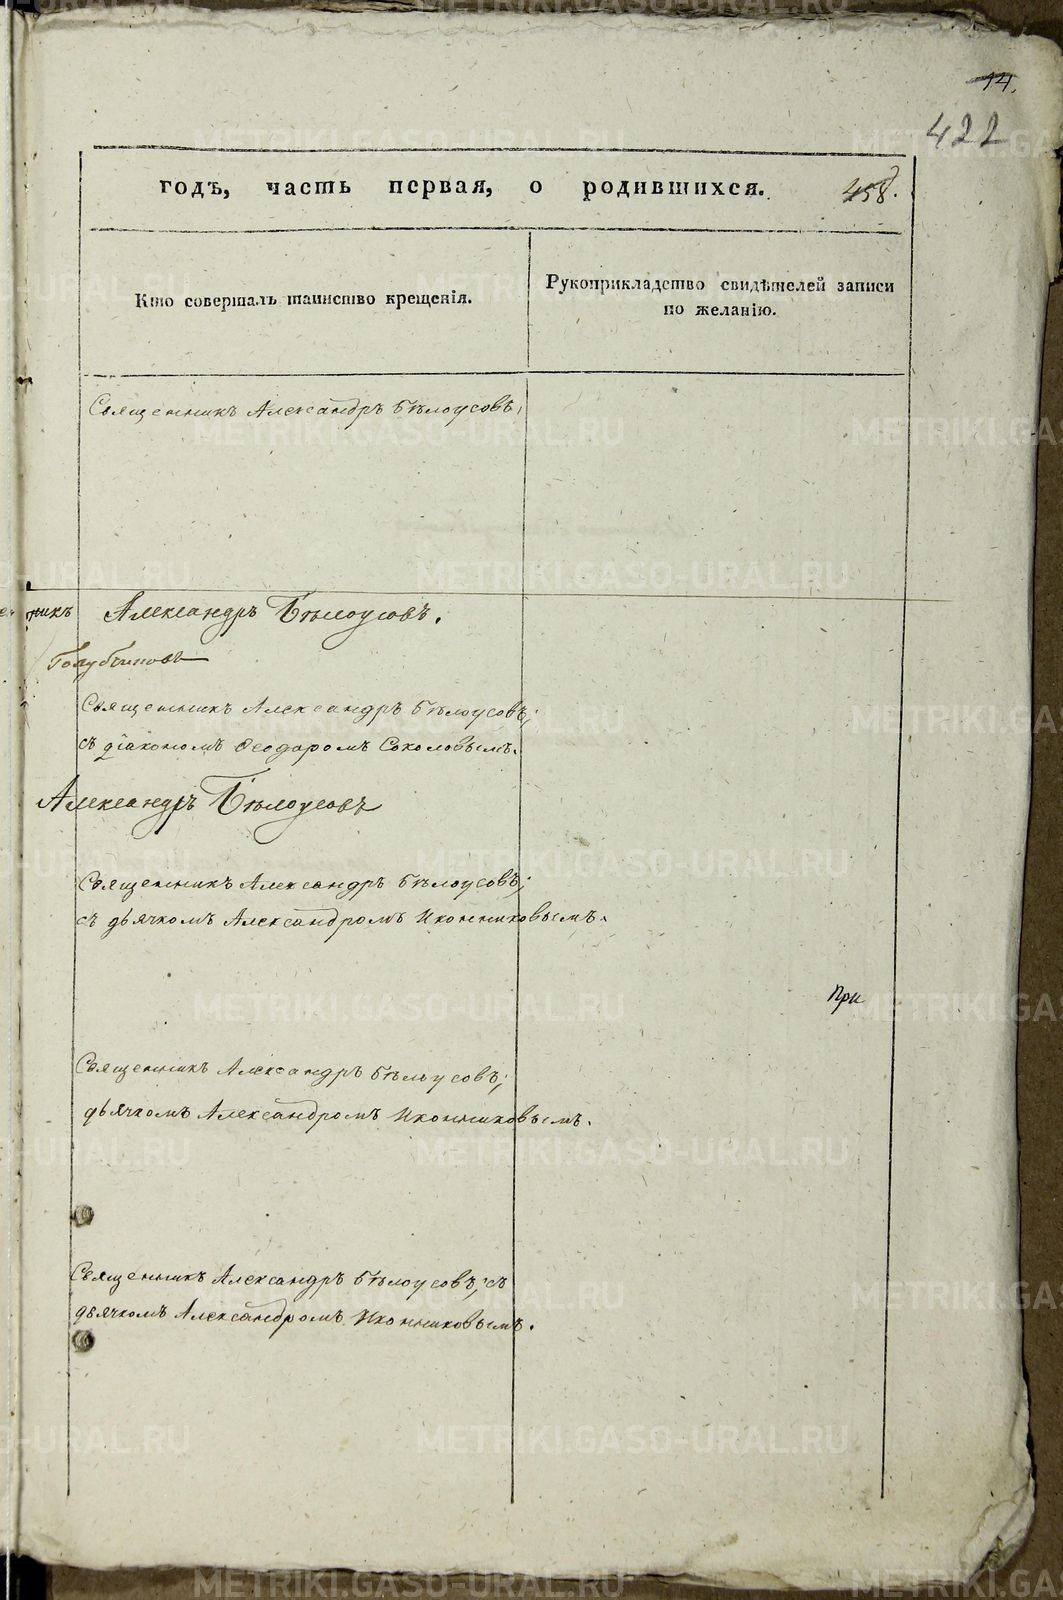 14.
422
годъ, часть первая, о родившихся.
458.
Кто совершалъ таинство крещенія.
Рукоприкладство свидѣтелей записи
по желанію.
Священникъ Александръ Бѣлоусовъ,
никъ Александръ Бѣлоусовъ.
Священникъ Александръ Бѣлоусовъ;
съ діакономъ Ѳеодоромъ Соколовымъ.
Александръ Бѣлоусовъ
Священникъ Александръ Бѣлоусовъ;
съ дьячкомъ Александромъ Иконниковымъ.
При
Священникъ Александръ Бѣлоусовъ;
дьячкомъ Александромъ Иконниковымъ.
Священникъ Александръ Бѣлоусовъ; съ
дьячкомъ Александромъ Иконниковымъ.
METRIKI.GASO-URAL.RU